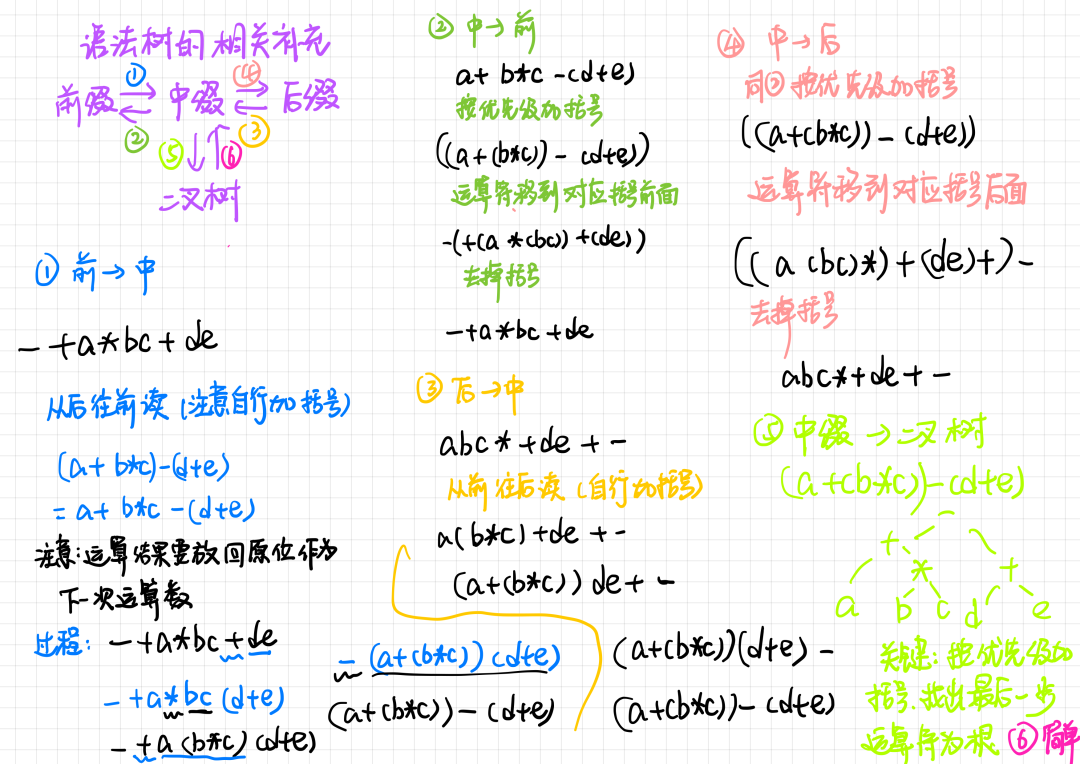 语法树的相关补充
前缀 ① ② 中缀 ④ ③ 后缀
⑤ ⑥
二叉树
① 前→中
- +a*bc+de
从后往前读(注意自行加括号)
(a+b*c)-(d+e)
=a+b*c-(d+e)
注意:运算结果要放回原位作为
下一次运算数
过程: -+a*bc+de
-+a*bc(d+e)
-+a(b*c)(d+e)
-(a+(b*c))(d+e)
(a+(b*c))-(d+e)
② 中→前
a+b*c-(d+e)
按优先级加括号
((a+(b*c))-(d+e))
运算符移到对应括号前面
-(+(a*(bc))+(de))
去掉括号
-+a*bc+de
③ 后→中
abc*+de+-
从前往后读(自行加括号)
a(b*c)+de+-
(a+(b*c))de+-
(a+(b*c))(d+e)-
(a+(b*c))-(d+e)
④ 中→后
同②按优先级加括号
((a+(b*c))-(d+e))
运算符移到对应括号后面
((a(bc)*)+(de)+)-
去掉括号
abc*+de+-
⑤ 中缀→二叉树
(a+(b*c))-(d+e)
-
+ * +
a b c d e
关键:按优先级加
括号.找出最后一步
运算符为根 ⑥ 简单